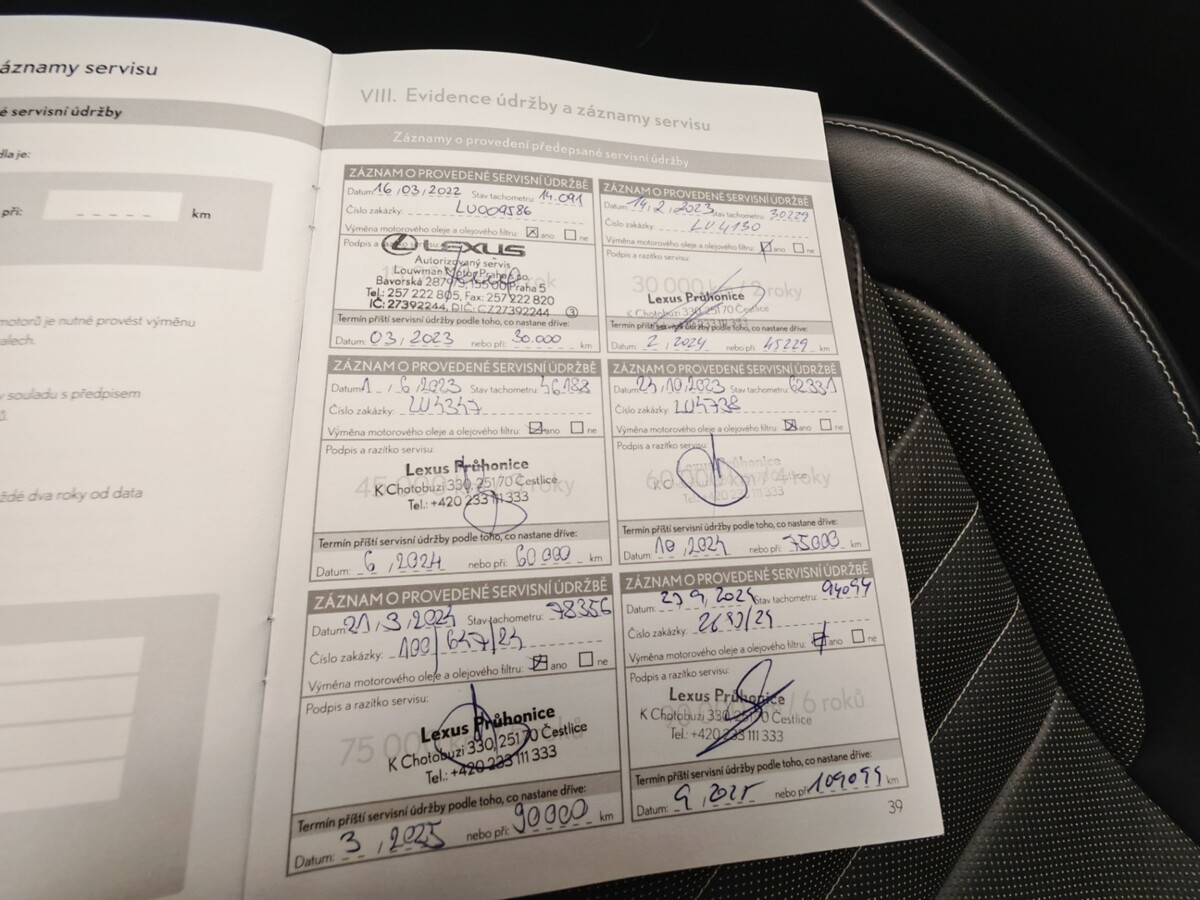 áznamy servisu
é servisní údržby
dla je:
při: _ _ _ _ _ km
motorů je nutné provést výměnu
alech.
v souladu s předpisem
ů.
ždé dva roky od data
VIII. Evidence údržby a záznamy servisu
Záznamy o provedení předepsané servisní údržby
ZÁZNAM O PROVEDENÉ SERVISNÍ ÚDRŽBĚ
Datum: 16,03,2022 Stav tachometru: 14.091
Číslo zakázky: LU009586
Výměna motorového oleje a olejového filtru: ☒ ano ☐ ne
Podpis a razítko servisu:
LEXUS
Autorizovaný servis
Louwman Motor Praha
Bavorská 155 00 Praha 5
Tel.: 257 222 805, Fax: 257 222 820
IČ: 27392244, DIČ: CZ27392244 3
Termín příští servisní údržby podle toho, co nastane dříve:
Datum: 03,2023 nebo při: 30.000 km
ZÁZNAM O PROVEDENÉ SERVISNÍ ÚDRŽBĚ
Datum: 14,2,2023 Stav tachometru: 30229
Číslo zakázky: LU4130
Výměna motorového oleje a olejového filtru: ☒ ano ☐ ne
Podpis a razítko servisu:
30 000 km / 2 roky
Lexus Průhonice
K Chotobuzi 330, 251 70 Čestlice
Termín příští servisní údržby podle toho, co nastane dříve:
Datum: 2,2024 nebo při: 45229 km
ZÁZNAM O PROVEDENÉ SERVISNÍ ÚDRŽBĚ
Datum: 1,6,2023 Stav tachometru: 46188
Číslo zakázky: LU4347
Výměna motorového oleje a olejového filtru: ☒ ano ☐ ne
Podpis a razítko servisu:
45 000 km / 3 roky
Lexus Průhonice
K Chotobuzi 330, 251 70 Čestlice
Tel.: +420 233 111 333
Termín příští servisní údržby podle toho, co nastane dříve:
Datum: 6,2024 nebo při: 60000 km
ZÁZNAM O PROVEDENÉ SERVISNÍ ÚDRŽBĚ
Datum: 24,10,2023 Stav tachometru: 62331
Číslo zakázky: LU4738
Výměna motorového oleje a olejového filtru: ☒ ano ☐ ne
Podpis a razítko servisu:
60 000 km / 4 roky
Průhonice
Tel.: +420 233 111 333
Termín příští servisní údržby podle toho, co nastane dříve:
Datum: 10,2024 nebo při: 75000 km
ZÁZNAM O PROVEDENÉ SERVISNÍ ÚDRŽBĚ
Datum: 21,3,2024 Stav tachometru: 78356
Číslo zakázky: 100/647/24
Výměna motorového oleje a olejového filtru: ☒ ano ☐ ne
Podpis a razítko servisu:
75 000
Lexus Průhonice
K Chotobuzi 330, 251 70 Čestlice
Tel.: +420 233 111 333
Termín příští servisní údržby podle toho, co nastane dříve:
Datum: 3,2025 nebo při: 90000 km
ZÁZNAM O PROVEDENÉ SERVISNÍ ÚDRŽBĚ
Datum: 27,9,2024 Stav tachometru: 94094
Číslo zakázky: 2689/24
Výměna motorového oleje a olejového filtru: ☒ ano ☐ ne
Podpis a razítko servisu:
90 000 km / 6 roků
Lexus Průhonice
K Chotobuzi 330, 251 70 Čestlice
Tel.: +420 233 111 333
Termín příští servisní údržby podle toho, co nastane dříve:
Datum: 9,2025 nebo při: 109094 km
39